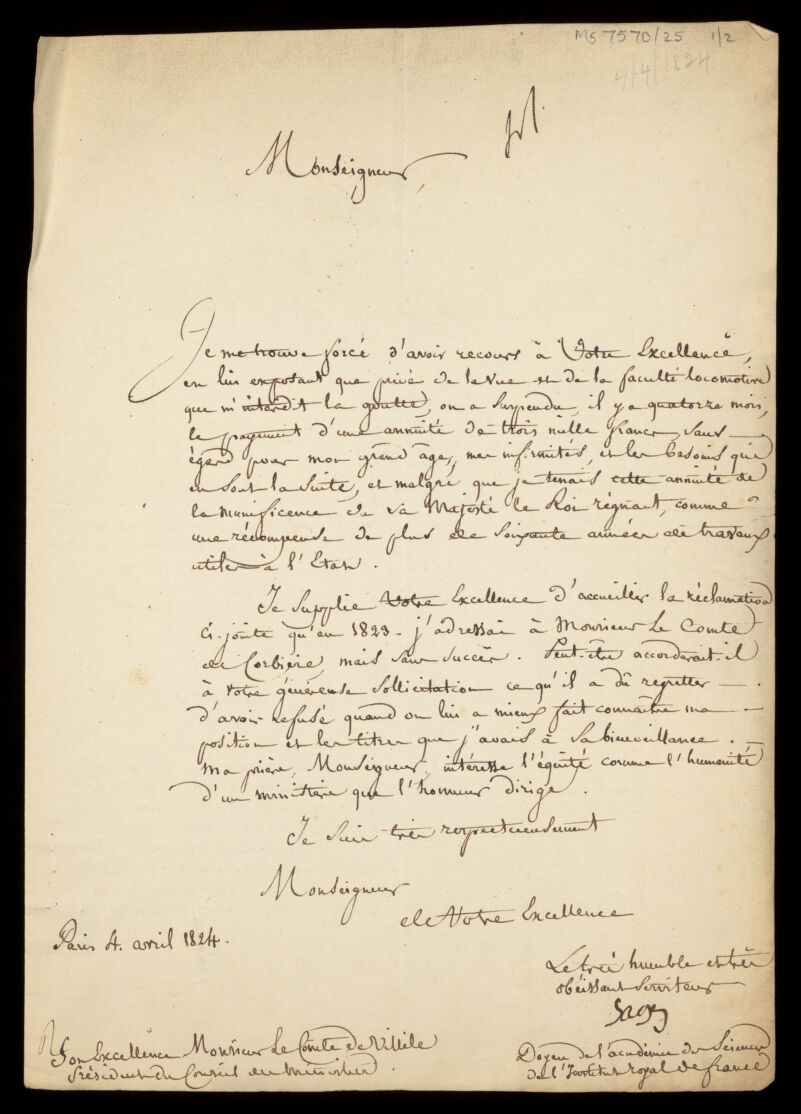 MS 7570/25 1/2
4/4/1824
Monseigneur,
Je me trouve forcé d'avoir recours à Votre Excellence,
en lui exposant que privé de la vue et de la faculté locomotive
que m'interdit la goutte, on a suspendu, il y a quatorze mois,
le payement d'une annuité de trois mille francs, sans
égard pour mon grand âge, mes infirmités, et les besoins qui
en sont la suite, et malgré que je tenais cette annuité de
la munificence de sa Majesté le Roi régnant, comme
une récompense de plus de soixante années de travaux
utiles à l'Etat.
Je supplie Votre Excellence d'accueillir la réclamation
ci-jointe qu'en 1823 - j'adressai à Monsieur Le Comte
de Corbière, mais sans succès. Peut-être accorderait-il
à votre généreuse sollicitation ce qu'il a dû regretter
d'avoir refusé quand on lui a mieux fait connaître ma
position et les titres que j'avais à sa bienveillance.
Ma prière, Monseigneur, intéresse l'équité comme l'humanité
d'un ministère que l'honneur dirige.
Je suis très respectueusement
Monseigneur
de Votre Excellence
Paris 4. avril 1824.
Le très humble et très
obéissant serviteur
Sage
Son Excellence Monsieur Le Comte de Villèle
Président du Conseil des ministres.
Doyen de l'académie des Sciences
de l'Institut royal de france